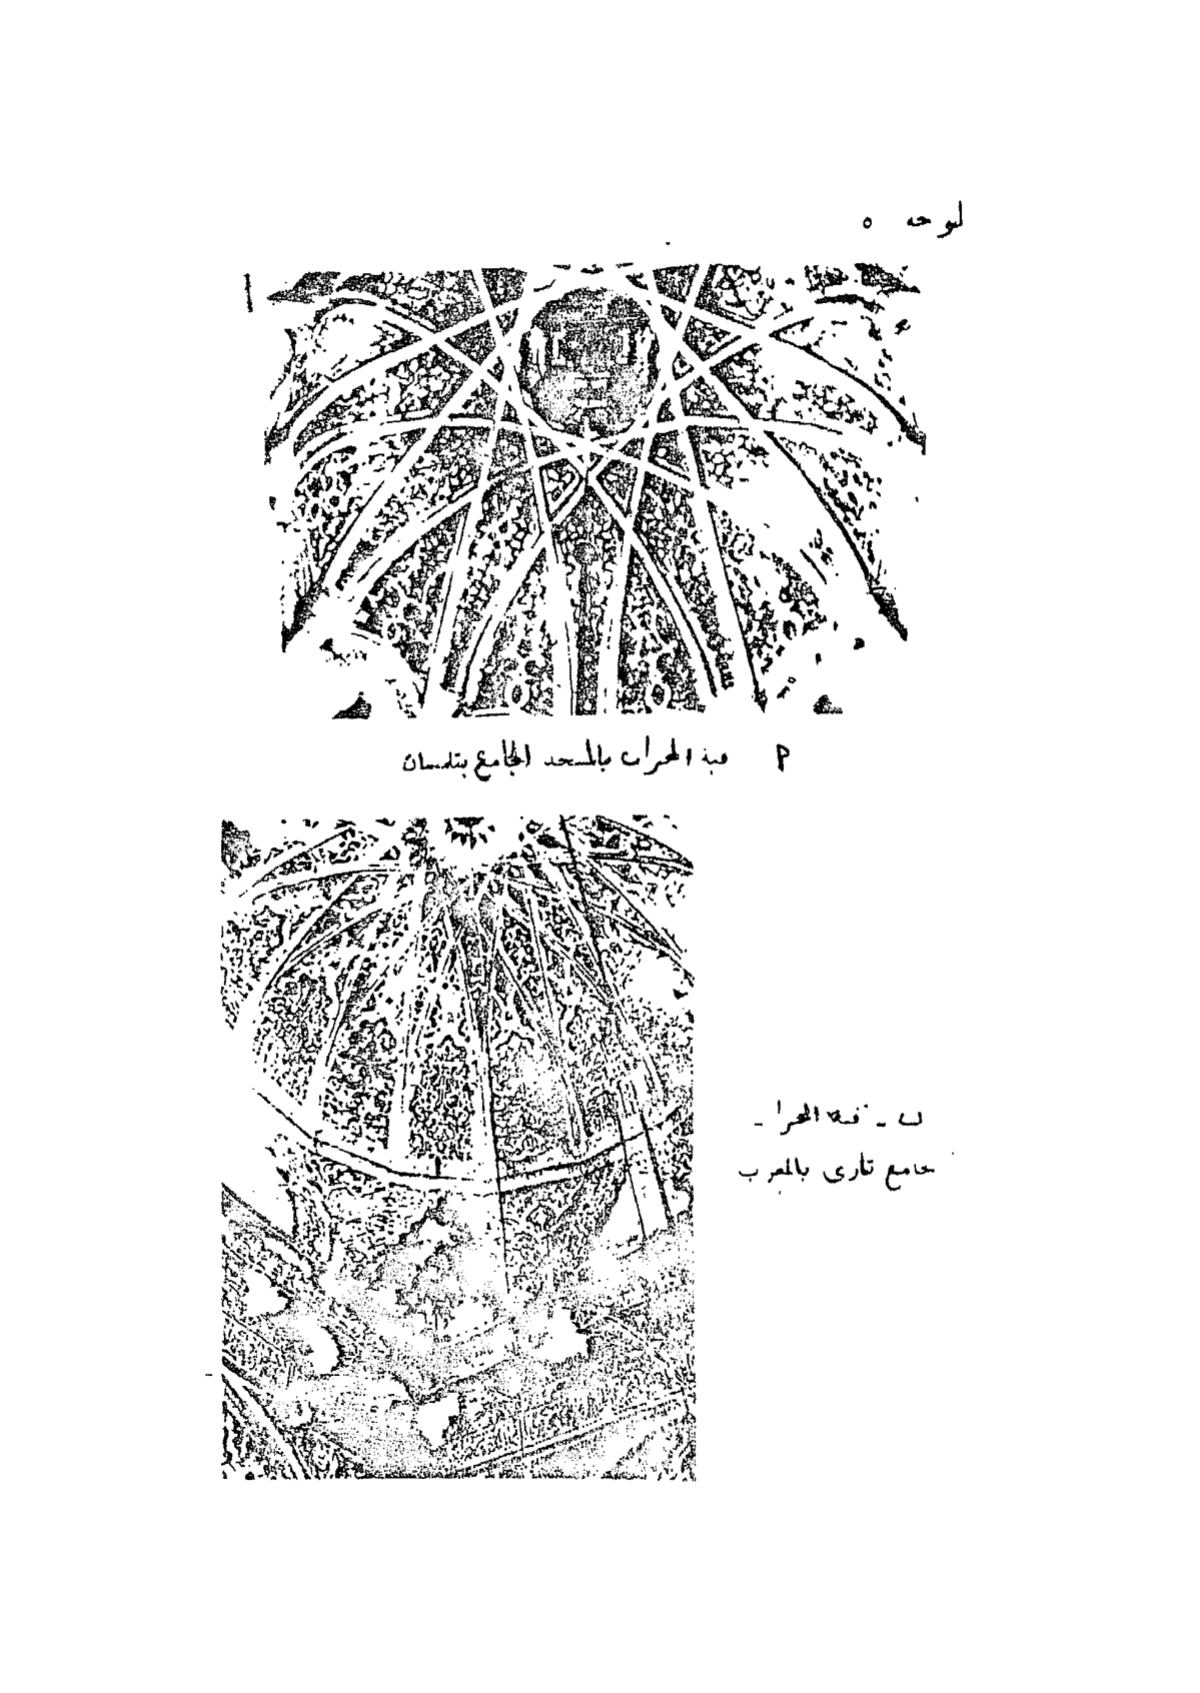 لوحه ٥
أ قبة المحراب بالمسجد الجامع بتلمسان
ب - قبة المحرا -
جامع تازى بالمغرب